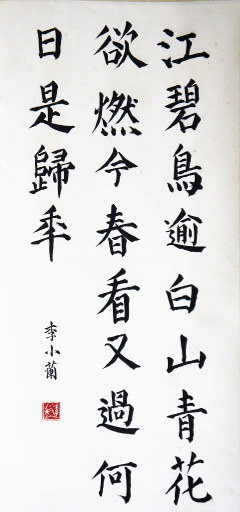 江碧鳥逾白山青花
欲燃今春看又過何
日是歸年
李小蘭